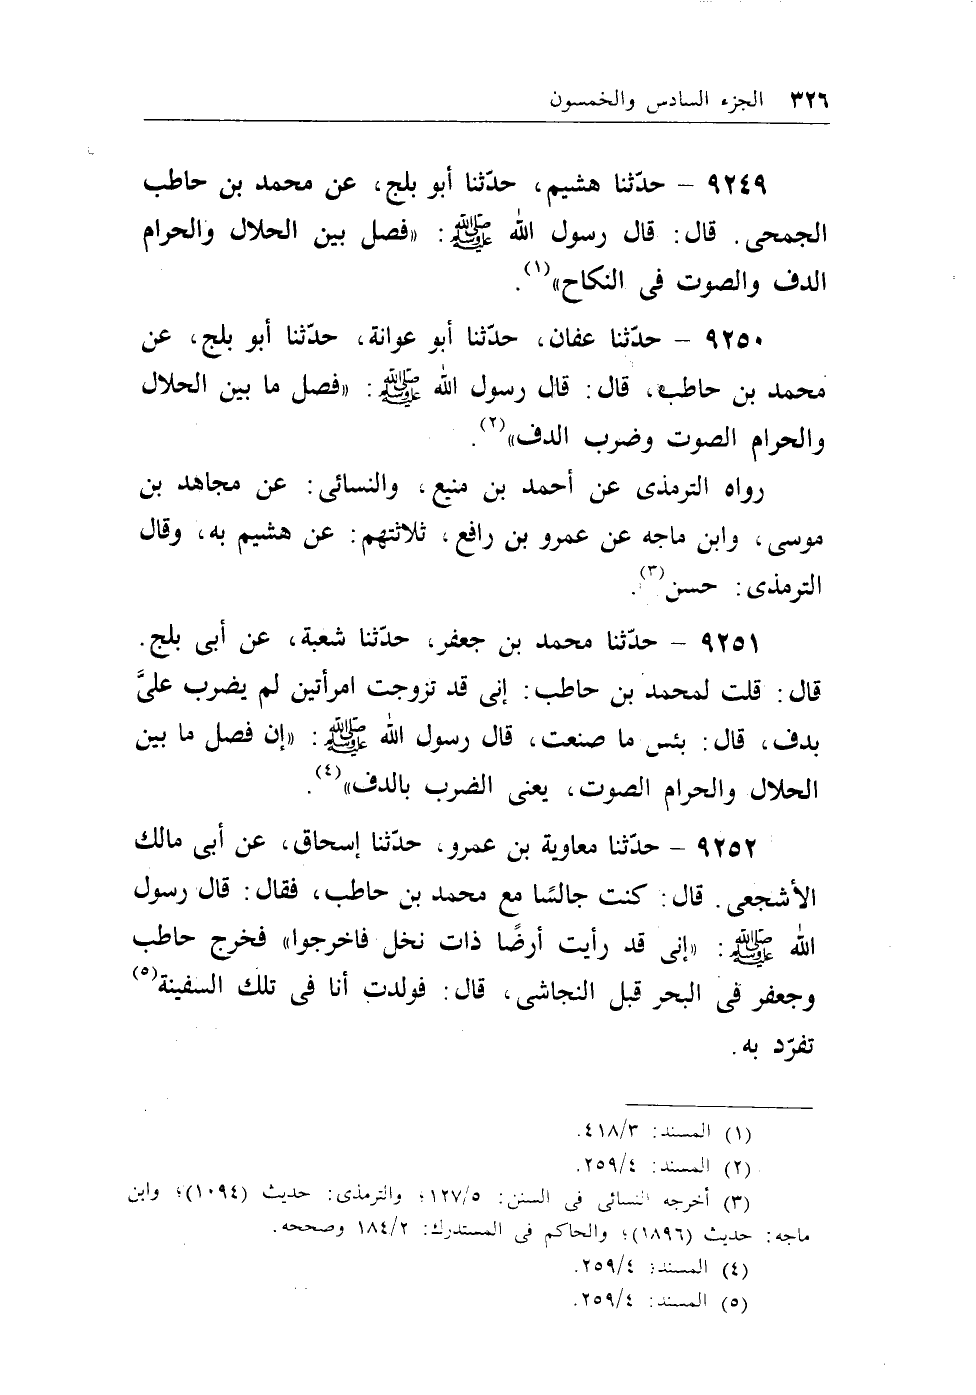 ٣٢٦ الجزء السادس والخمسون
٩٢٤٩ - حدّثنا هشيم، حدّثنا أبو بلج، عن محمد بن حاطب
الجمحى. قال: قال رسول الله ﷺ: «فصل بين الحلال والحرام
الدف والصوت فى النكاح»(١).
٩٢٥٠ - حدّثنا عفان، حدّثنا أبو عوانة، حدّثنا أبو بلج، عن
محمد بن حاطب، قال: قال رسول الله ﷺ: «فصل ما بين الحلال
والحرام الصوت وضرب الدف»(٢).
رواه الترمذى عن أحمد بن منيع، والنسائى: عن مجاهد بن
موسى، وابن ماجه عن عمرو بن رافع، ثلاثتهم: عن هشيم به، وقال
الترمذى: حسن(٣).
٩٢٥١ - حدّثنا محمد بن جعفر، حدّثنا شعبة، عن أبى بلج.
قال: قلت لمحمد بن حاطب: إنى قد تزوجت امرأتين لم يضرب علىَّ
بدف، قال: بئس ما صنعت، قال رسول الله ﷺ: «إن فصل ما بين
الحلال والحرام الصوت، يعنى الضرب بالدف»(٤).
٩٢٥٢ - حدّثنا معاوية بن عمرو، حدّثنا إسحاق، عن أبى مالك
الأشجعى. قال: كنت جالسًا مع محمد بن حاطب، فقال: قال رسول
الله ﷺ: «إنى قد رأيت أرضًا ذات نخل فاخرجوا» فخرج حاطب
وجعفر فى البحر قبل النجاشى، قال: فولدت أنا فى تلك السفينة(٥)
تفرّد به.
(١) المسند: ٤١٨/٣.
(٢) المسند: ٢٥٩/٤.
(٣) أخرجه النسائى فى السنن: ١٢٧/٥؛ والترمذى: حديث (١٠٩٤)؛ وابن
ماجه: حديث (١٨٩٦)؛ والحاكم فى المستدرك: ١٨٤/٢ وصححه.
(٤) المسند: ٢٥٩/٤.
(٥) المسند: ٢٥٩/٤.